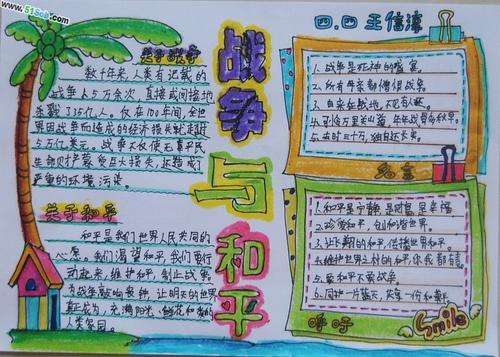 www.51Sob.com
关于战争
数千年来,人类有记载的
战争大5万余次,直接或间接地
杀戮了35亿人。仅在100年间,全世
界因战争而造成的经济损失就超过
5万亿美元。战争不仅使无辜平民
生命财产蒙受巨大损失,还造成了
严重的环境污染。
关于和平
和平是我们世界人民共同的
心愿。我们渴望和平,我们要行
动起来,维护和平,制止战争。
为战争敲响丧钟,让明天的世界
真正成为,充满阳光、鲜花和爱的
人类家园。
战争与和平
四、四 王信淳
1.战争是死神的盛宴。
2.所有母亲都憎恨战争。
3.自来征战地,不见有人还。
5.去时三十万,独自还长
名言
1.和平是宁静、是财富、是幸福。
2.珍爱和平,创和谐世界。
3.让长期的和平,传播世界和平。
4.维护世界上村的和平,你我都有责。
5.要和平不要战争。
6.同护一片蓝天,共享一份和平。
呼吁
Smile